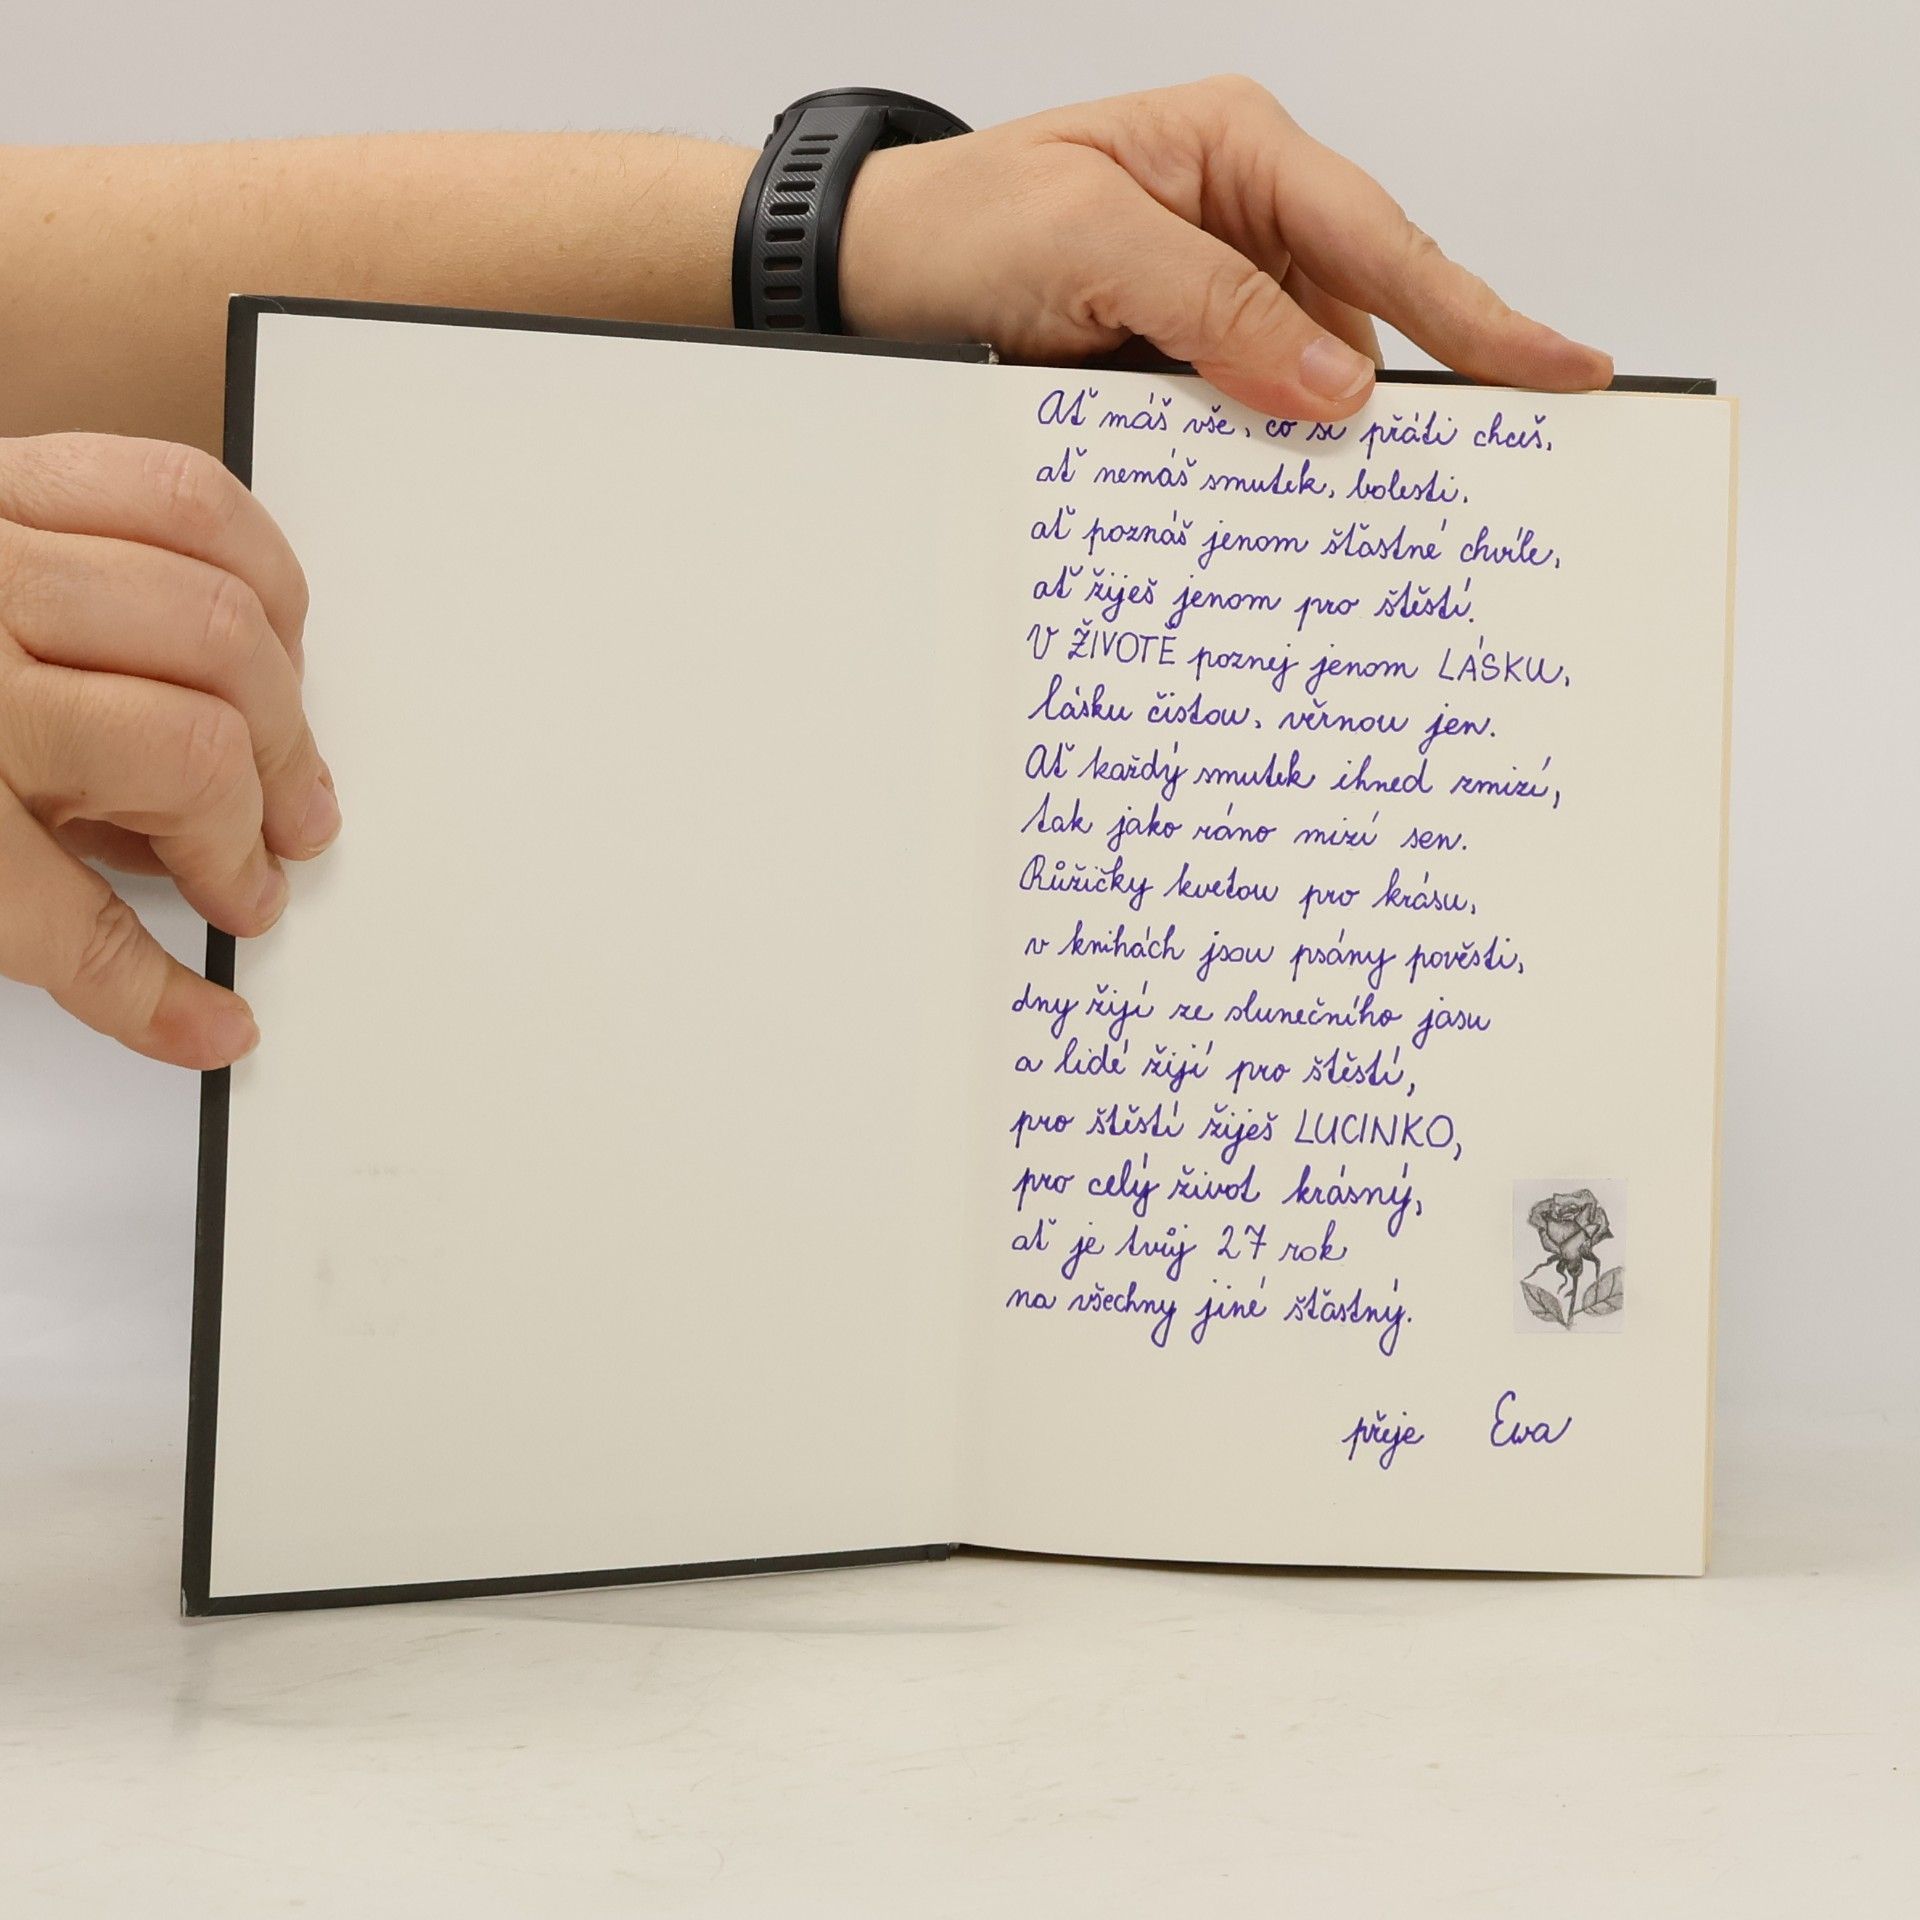 Ať máš vše, co si přáti chceš,
ať nemáš smutek, bolesti,
ať poznáš jenom šťastné chvíle,
ať žiješ jenom pro štěstí.
V ŽIVOTĚ poznej jenom LÁSKU,
lásku čistou, věrnou jen.
Ať každý smutek ihned zmizí,
tak jako ráno mizí sen.
Růžičky kvetou pro krásu,
v knihách jsou psány pověsti,
dny žijí ze slunečního jasu
a lidé žijí pro štěstí,
pro štěstí žiješ LUCINKO,
pro celý život krásný,
ať je tvůj 27 rok
na všechny jiné šťastný.
přeje Ewa